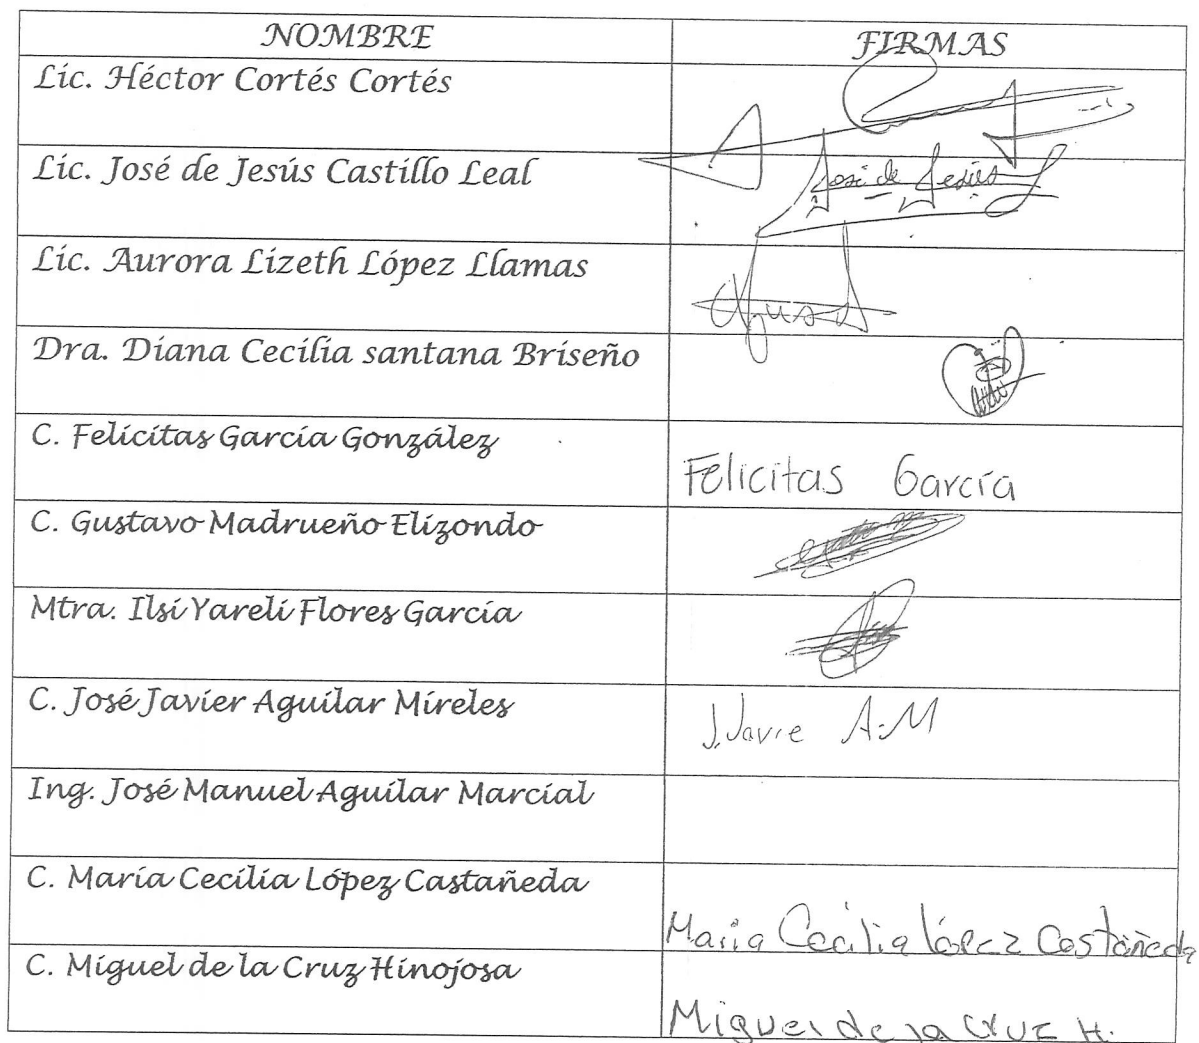 NOMBRE FIRMAS
Lic. Héctor Cortés Cortés
Lic. José de Jesús Castillo Leal José de Jesús
Lic. Aurora Lizeth López Llamas
Dra. Diana Cecilia santana Briseño
C. Felicitas García González Felicitas García
C. Gustavo Madrueño Elizondo
Mtra. Ilsi Yareli Flores García
C. José Javier Aguilar Mireles J. Javie A.M
Ing. José Manuel Aguilar Marcial
C. María Cecilia López Castañeda Maria Cecilia López Castañeda
C. Miguel de la Cruz Hinojosa Miguel de la Cruz H.